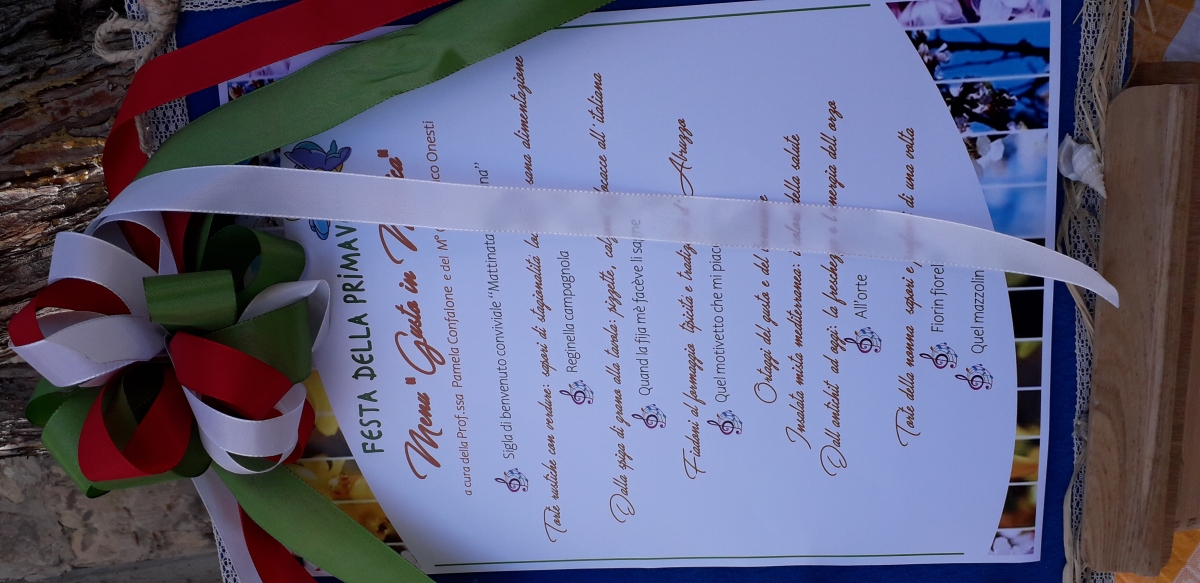 FESTA DELLA PRIMAV
Menu "Gusto in
a cura della Prof.ssa Pamela Confalone e del M° co Onesti
Sigla di benvenuto conviviale "Mattinata
Torte rustiche con verdure: sapori di stagionalità sana alimentazione
Reginella campagnola
Dalla spiga di grano alla tavola: pizzette, all'italiana
Quand la fija mè facève li sa ne
Fiadoni al formaggio tipicità e Abruzzo
Quel motivetto che mi piac
Ortaggi del gusto e del
Insalata mista mediterranea: i della salute
Dall'antichità ad oggi: la freschezza e l'energia dell'orzo
All'orte
Torte della nonna sapori e di una volta
Fiorin fiorel
Quel mazzolin